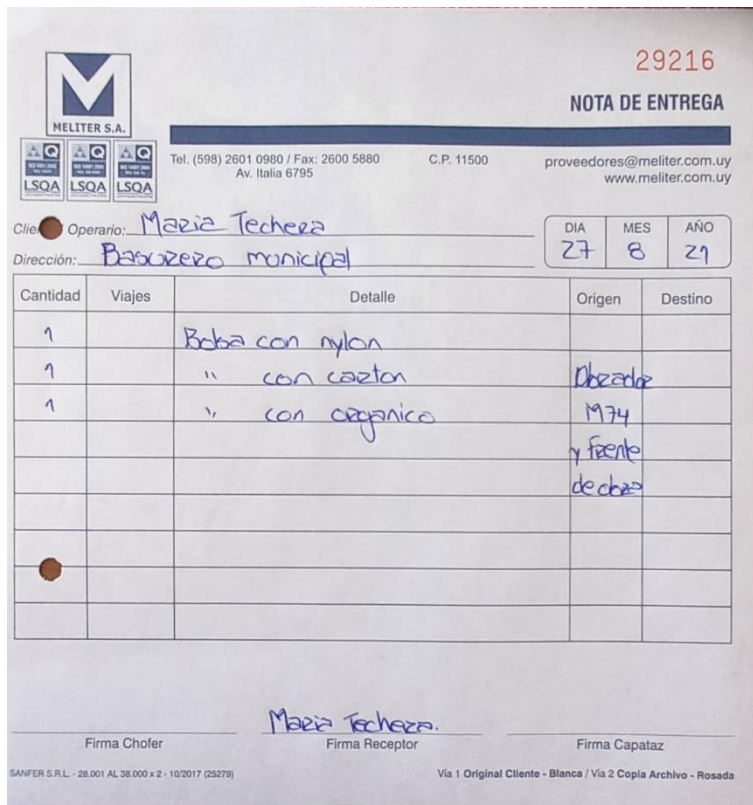 29216
NOTA DE ENTREGA
MELITER S.A.
LSQA LSQA LSQA
Tel. (598) 2601 0980 / Fax: 2600 5880 C.P. 11500 proveedores@meliter.com.uy
Av. Italia 6795 www.meliter.com.uy
Operario: Maria Techera DIA MES AÑO
Dirección: Basurero municipal 27 8 21
Cantidad Viajes Detalle Origen Destino
1 Bolsa con nylon
1 " con carton Obrador
1 " con organico M74
y frente
de obra
Maria Techera.
Firma Chofer Firma Receptor Firma Capataz
SANFER S.R.L. - 28.001 AL 38.000 x 2 - 10/2017 (25279) Vía 1 Original Cliente - Blanca / Vía 2 Copia Archivo - Rosada